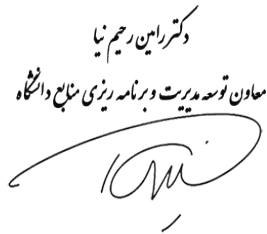 دکتر رامین رحیم نیا
معاون توسعه مدیریت و برنامه ریزی منابع دانشگاه